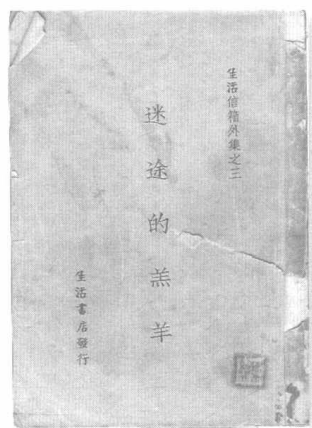 生活信箱外集之三
迷途的羔羊
生活書店發行